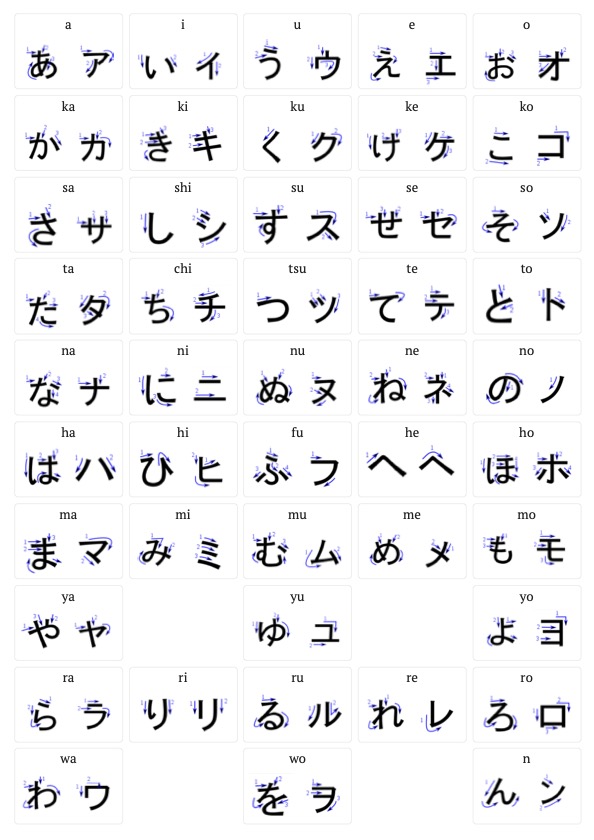 a i u e o
あ ア い イ う ウ え エ お オ
ka ki ku ke ko
か カ き キ く ク け ケ こ コ
sa shi su se so
さ サ し シ す ス せ セ そ ソ
ta chi tsu te to
た タ ち チ つ ツ て テ と ト
na ni nu ne no
な ナ に ニ ぬ ヌ ね ネ の ノ
ha hi fu he ho
は ハ ひ ヒ ふ フ へ ヘ ほ ホ
ma mi mu me mo
ま マ み ミ む ム め メ も モ
ya yu yo
や ヤ ゆ ユ よ ヨ
ra ri ru re ro
ら ラ り リ る ル れ レ ろ ロ
wa wo n
わ ワ を ヲ ん ン